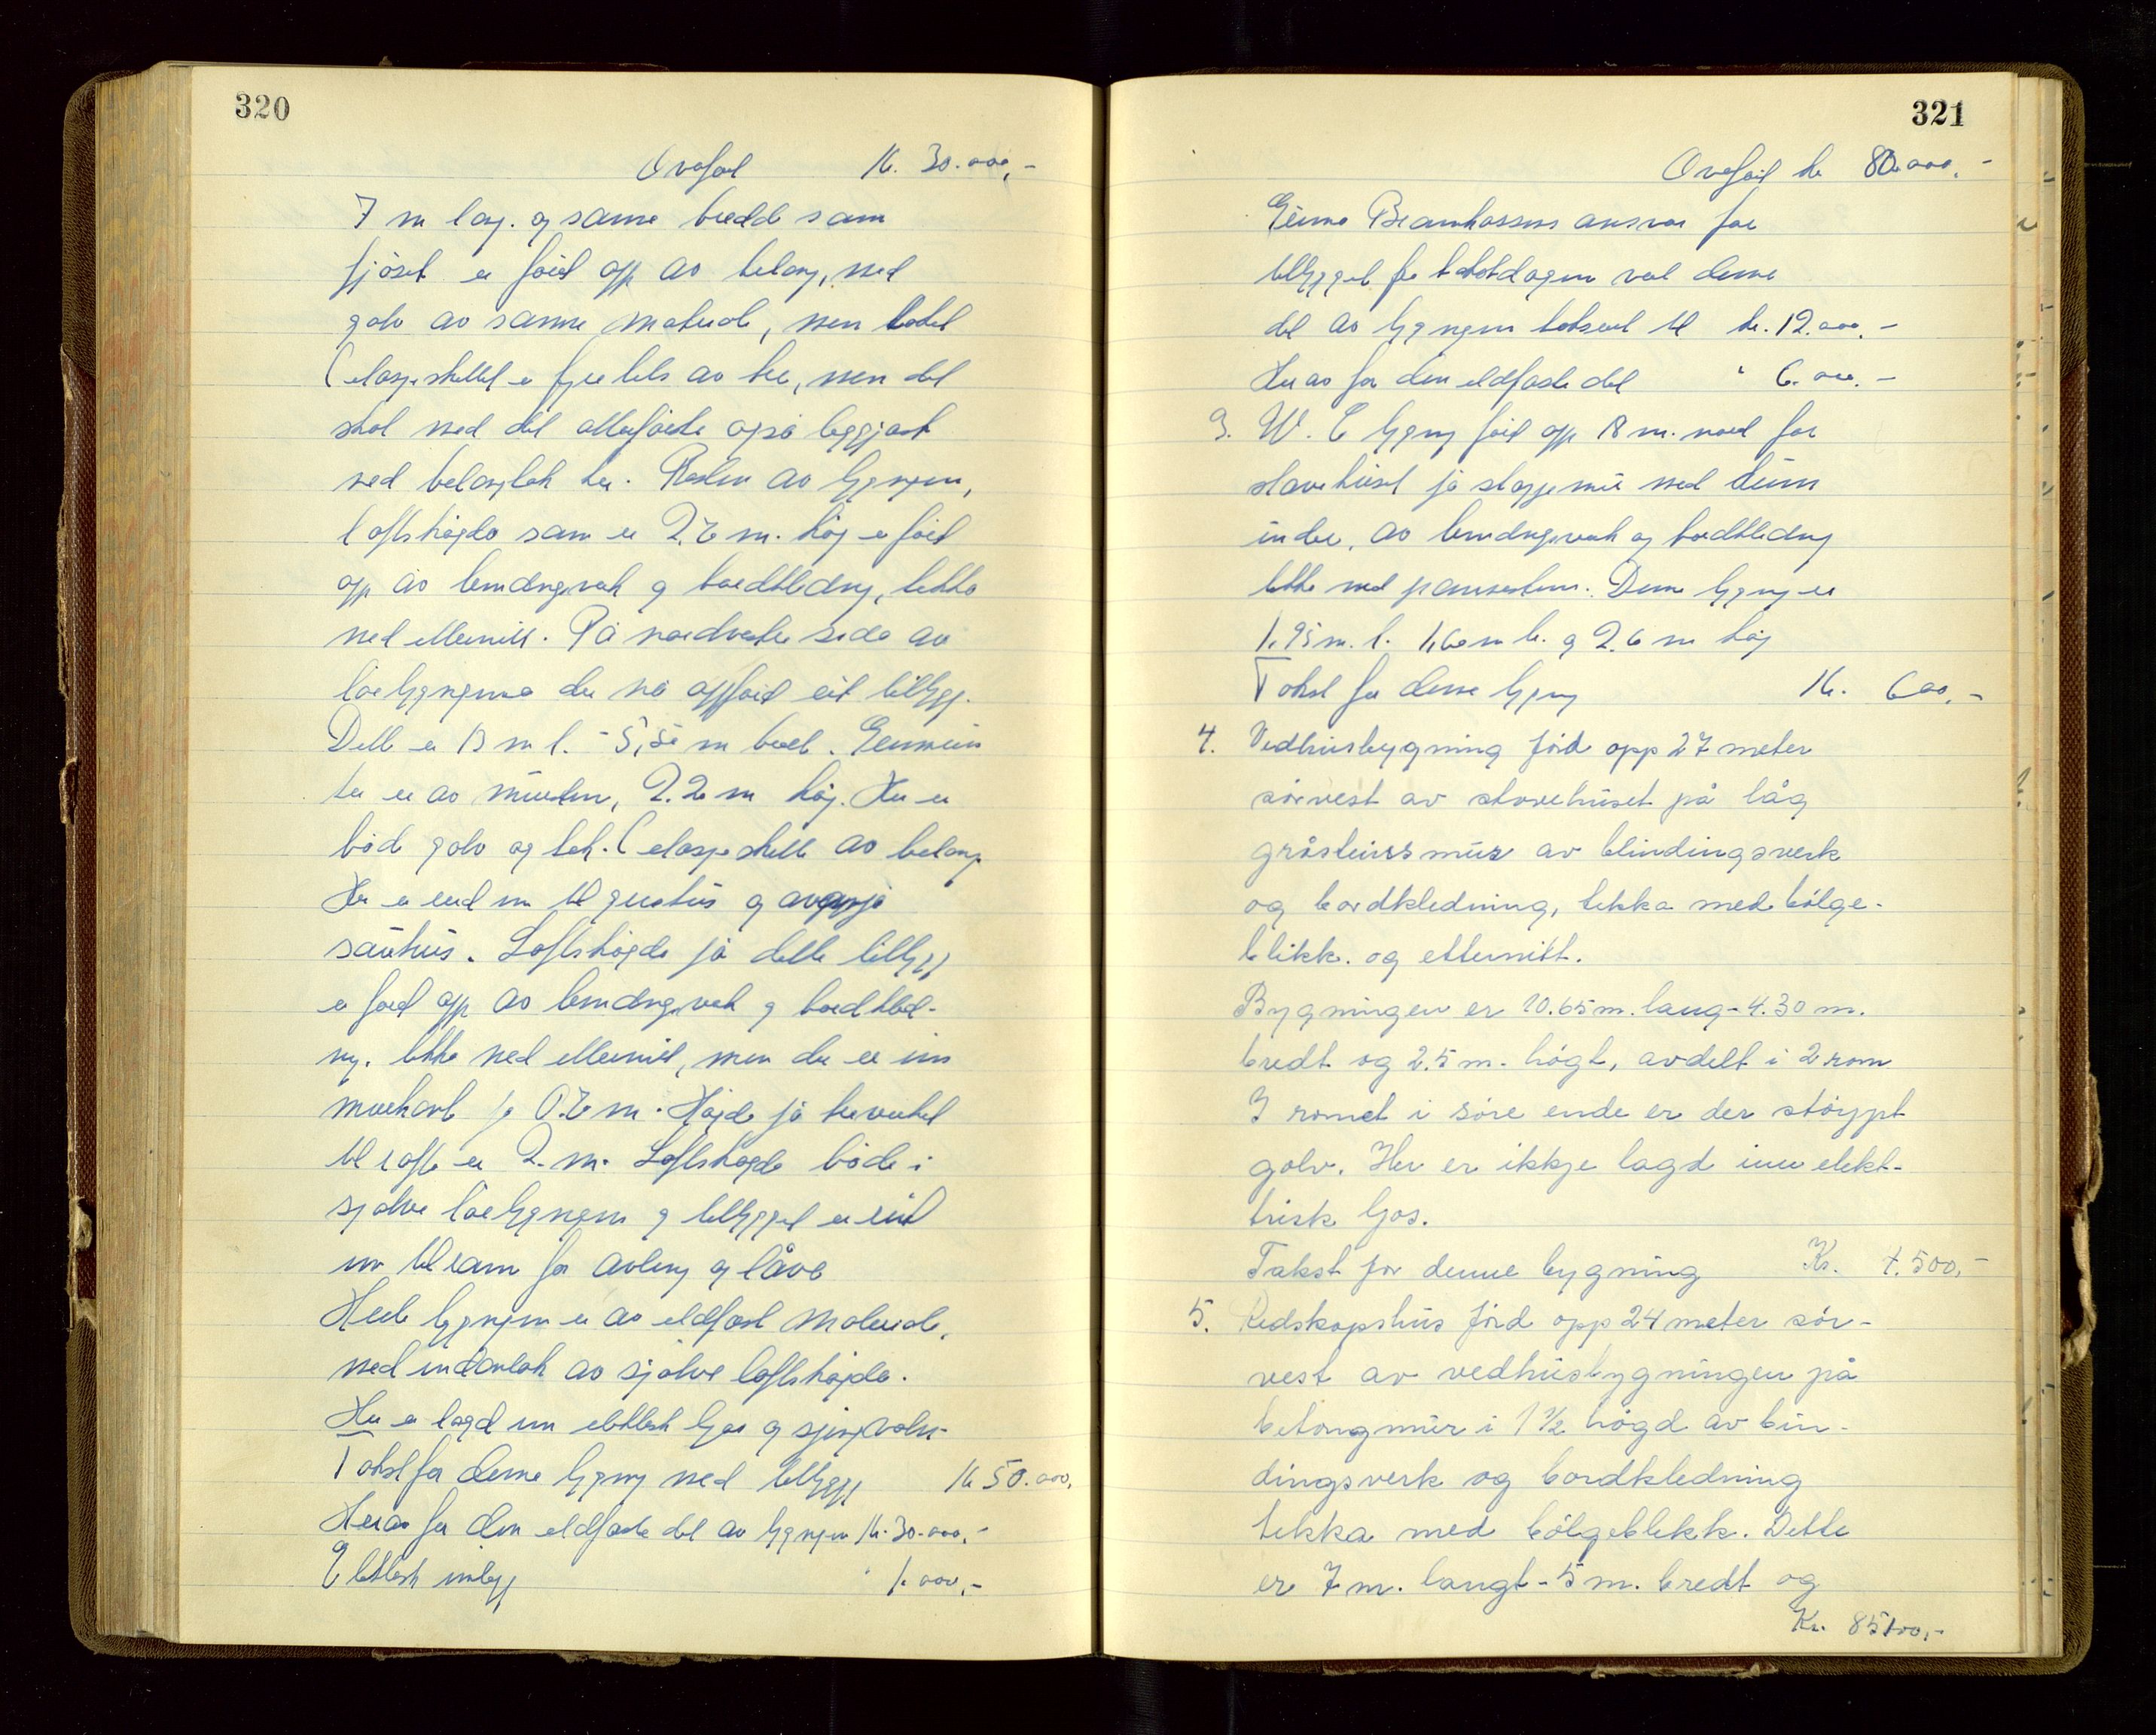 320
Overført Kr. 30.000,-
7 m lang. og same bredd som
fjøset er ført opp av betong, med
golv av same materiale, men taket
(etasjeskillet er fyrebels av tre, men det
skal med det allerførste også leggjast
med betongtak her. Resten av bygnjen,
loftshøgda som er 2.7 m. høg er ført
opp av bindingsverk og bordkledning, tekka
med etternitt. På nordvestre sida av
løebygnjena der no oppført eit tilbygg.
Dette er 13 m l. - 5,50 m bredt. Grunnmuren
her er av mурstein, 2.20 m høg. Her er
både golv og tak (etasjeskille av betong
Her er reid inn til grishus og
sauhus. Loftshøgda på dette tilbygg
er ført opp av bindingsverk og bordkled-
ning. tekka med etternitt, men der er inn
på 0.7 m. Høgda på
til loft er 2. m. Loftshøgda både i
sjølve løebygnjen og tilbygget er reid
inn til rom for avling og låve
Heile bygnjen er av eldfast materiale,
med unntak av sjølve loftshøgda.
Her er lagd inn elektrisk ljos og
Takst for denne bygning med tilbygg Kr 50.000,
Herav for den eldfaste del av bygnjen Kr. 30.000,-
Elektrisk innlegg " 1.000,-
321
Overført kr 80.000,-
Brannkassens ansvar for
tilbygget fra takstdagen vert denne
del av bygnjen taksert til kr. 12.000,-
Herav for den eldfaste del " 6.000,-
3. W.C bygning ført opp 18 m. nord for
stovehuset på støypemur med
under, av bindingsverk og bordkledning
tekka med pannestein. Denne bygning er
1,95 m. l. 1,60 m b. og 2.6 m høg
Takst for denne bygning Kr. 600,-
4. Vedhusbygning førd opp 27 meter
sørvest av stovehuset på låg
gråsteinsmur av blindingsverk
og bordkledning, tekka med bølge-
blikk. og etternitt.
Bygningen er 10.65 m. lang - 4.30 m.
bredt og 2.5 m. høgt, avdelt i 2 rom
I romet i søre ende er der støypt
golv. Her er ikkje lagd inn elekt-
trisk ljos.
Takst for denne bygning Kr. 4.500,-
5. Redskapshus førd opp 24 meter sør-
vest av vedhusbygningen på
betongmur i 1 1/2 høgd av bin-
dingsverk og bordkledning
tekka med bølgeblekk. Dette
er 7 m. langt - 5 m. bredt og
Kr. 85100,-